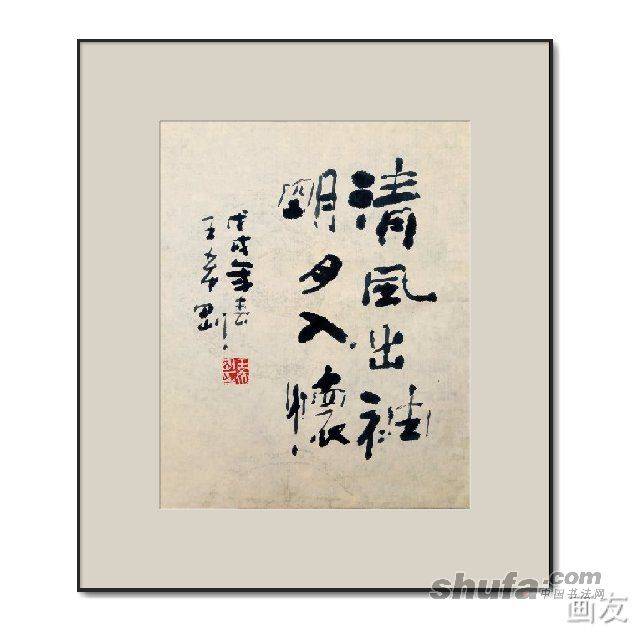 清風出袖
明月入懷
戊戌年春
王希剛
shufa.com
中国书法网
画友